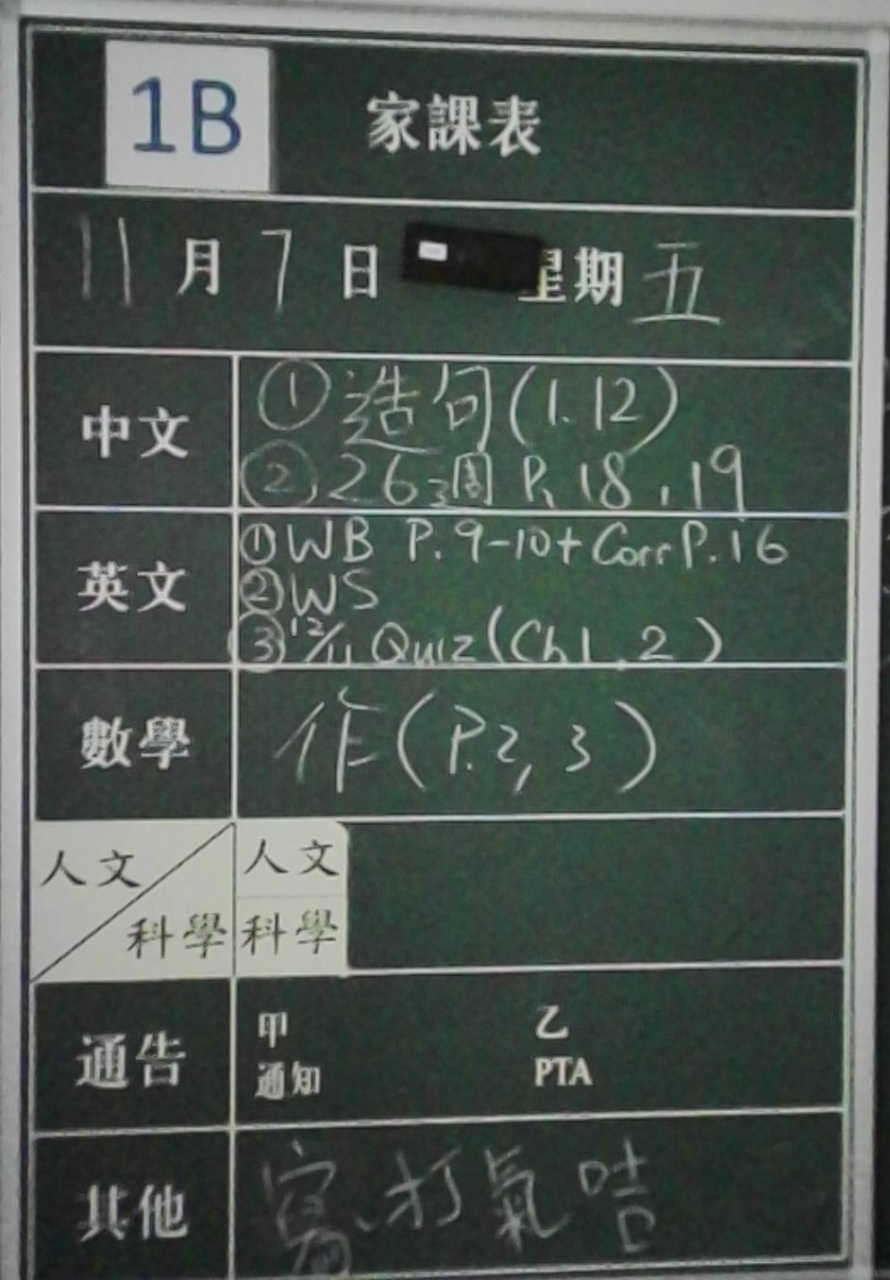 1B 家課表
11月7日 星期五
中文
①造句(1.12)
②26 3周 P. 18, 19
英文
①WB P.9-10+Corr P.16
②WS
③12/11 Quiz(Ch1,2)
數學
作(P.2, 3)
人文
科學
人文
科學
通告
甲 乙
通知 PTA
其他
寫打氣咭